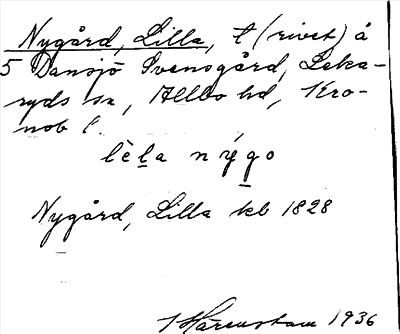 Nygård, Lilla, t (rivet) å
5 Dansjö Svensgård, Leka-
ryds sn, Allbo hd, Kro-
nob l.
lèḻa nýg̱o
Nygård, Lilla kb 1828
1936